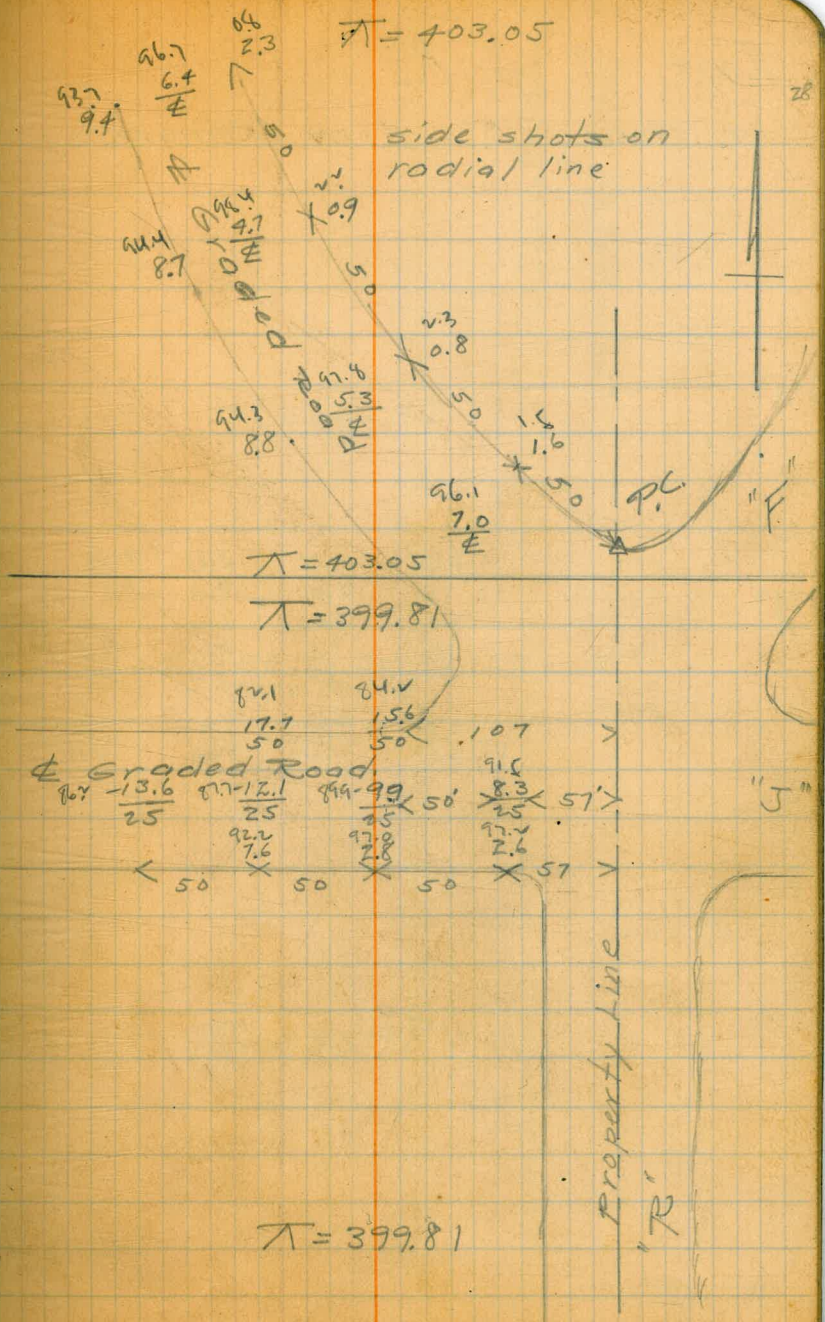 ⊼ = 403.05
28
0.8
2.3
96.7
6.4
℄
93.7
9.4
side shots on
radial line
50
0.9
98.4
4.7
℄
94.4
8.7
50
Graded Road
2.3
0.8
97.8
5.3
℄
94.3
8.8
50
1.5
1.6
50
96.1
7.0
℄
P.C.
"F"
⊼ = 403.05
⊼ = 399.81
82.1
17.7
50
84.2
15.6
50
107
℄ Graded Road
86.2 -13.6
25
87.7 -12.1
25
89.9 -9.9
25
50'
91.5
8.3
25
57'
"J"
92.2
7.6
97.0
2.8
97.2
2.6
57
50 50 50
Property Line
"R"
⊼ = 399.81